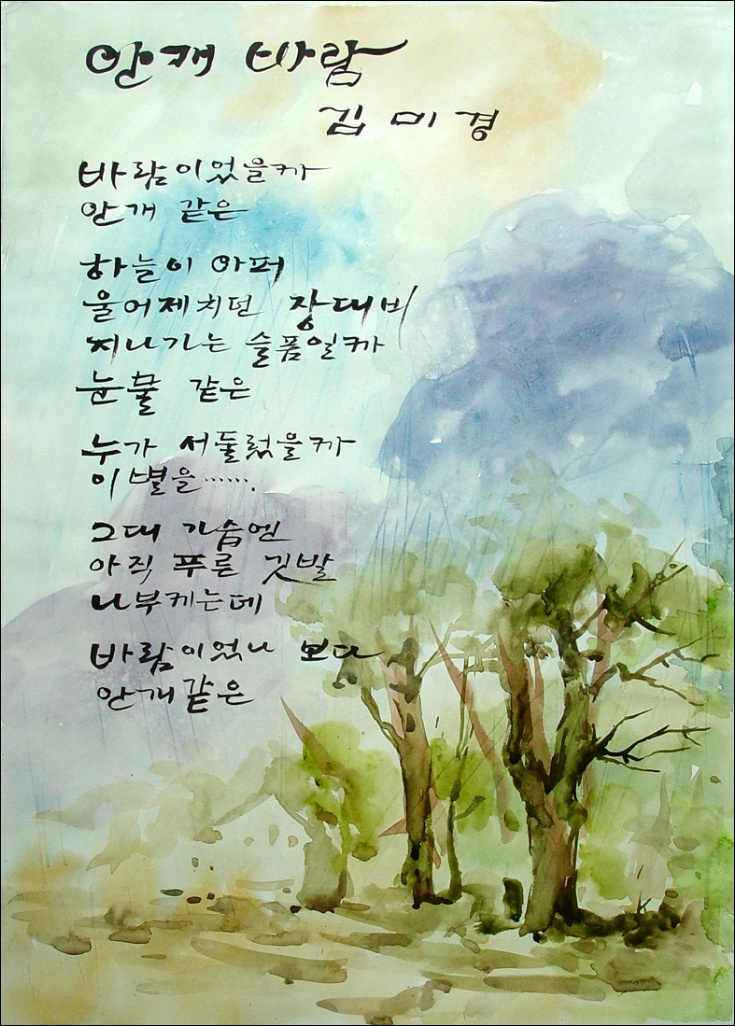 안개 바람
김미경
바람이었을까
안개 같은
하늘이 아퍼
울어제치던 장대비
지나가는 슬픔일까
눈물 같은
누가 서둘렀을까
이별을…….
그대 가슴엔
아직 푸른 깃발
나부께는데
바람이었나 보다
안개같은